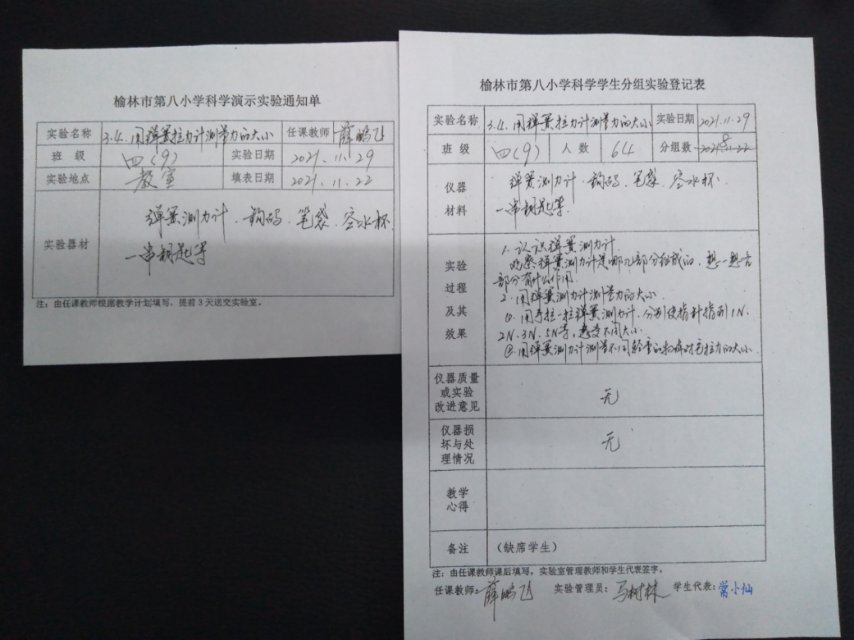 榆林市第八小学科学演示实验通知单
实验名称 3.4.用弹簧拉力计测量力的大小 任课教师 薛鹏飞
班级 四(9) 实验日期 2021.11.29
实验地点 教室 填表日期 2021.11.22
实验器材 弹簧测力计.钩码.笔袋.空水杯.
一串钥匙等
注：由任课教师根据教学计划填写，提前3天送交实验室。
榆林市第八小学科学学生分组实验登记表
实验名称 3.4.用弹簧拉力计测量力的大小 实验日期 2021.11.29
班级 四(9) 人数 64 分组数 8
仪器材料 弹簧测力计.钩码.笔袋.空水杯.
一串钥匙等.
实验过程及其效果
1.认识弹簧测力计
观察弹簧测力计是哪几部分组成的，想一想各
部分有什么作用.
2.用弹簧测力计测量力的大小
①.用手拉一拉弹簧测力计，分别使指针指到1N、
2N、3N、5N等，感受不同大小
②.用弹簧测力计测量不同轻重的物体对它拉力的大小.
仪器质量或实验改进意见 无
仪器损坏与处理情况 无
教学心得
备注 （缺席学生）
注：由任课教师课后填写，实验室管理教师和学生代表签字。
任课教师:薛鹏飞 实验管理员:马树林 学生代表:常小仙